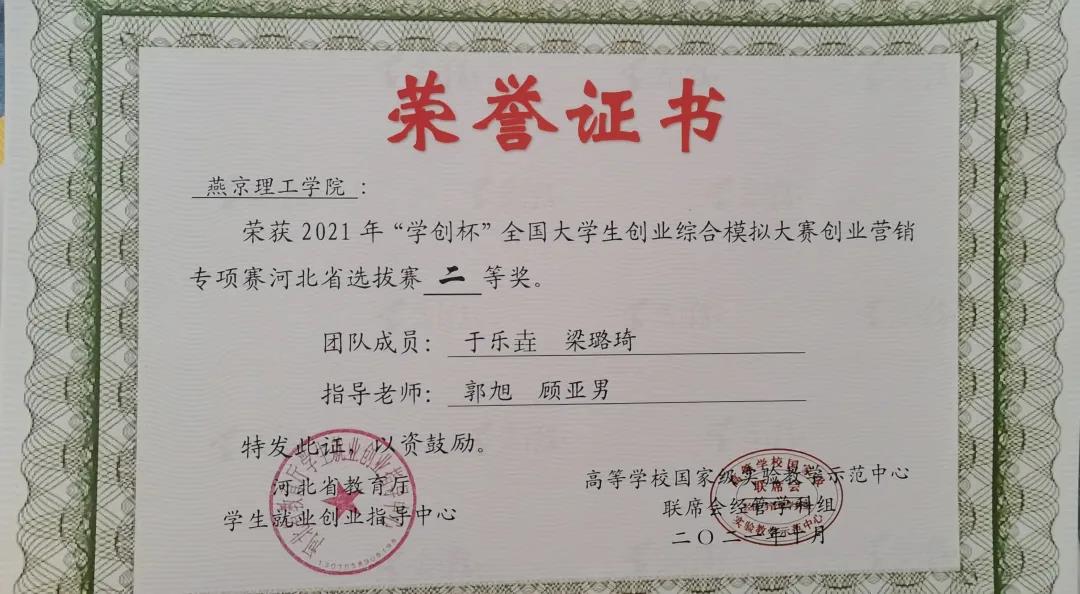 荣誉证书
燕京理工学院：
荣获2021年“学创杯”全国大学生创业综合模拟大赛创业营销
专项赛河北省选拔赛 二 等奖。
团队成员： 于乐垚 梁璐琦
指导老师： 郭旭 顾亚男
特发此证，以资鼓励。
河北省教育厅
学生就业创业指导中心
高等学校国家级实验教学示范中心
联席会经管学科组
二〇二一年十月